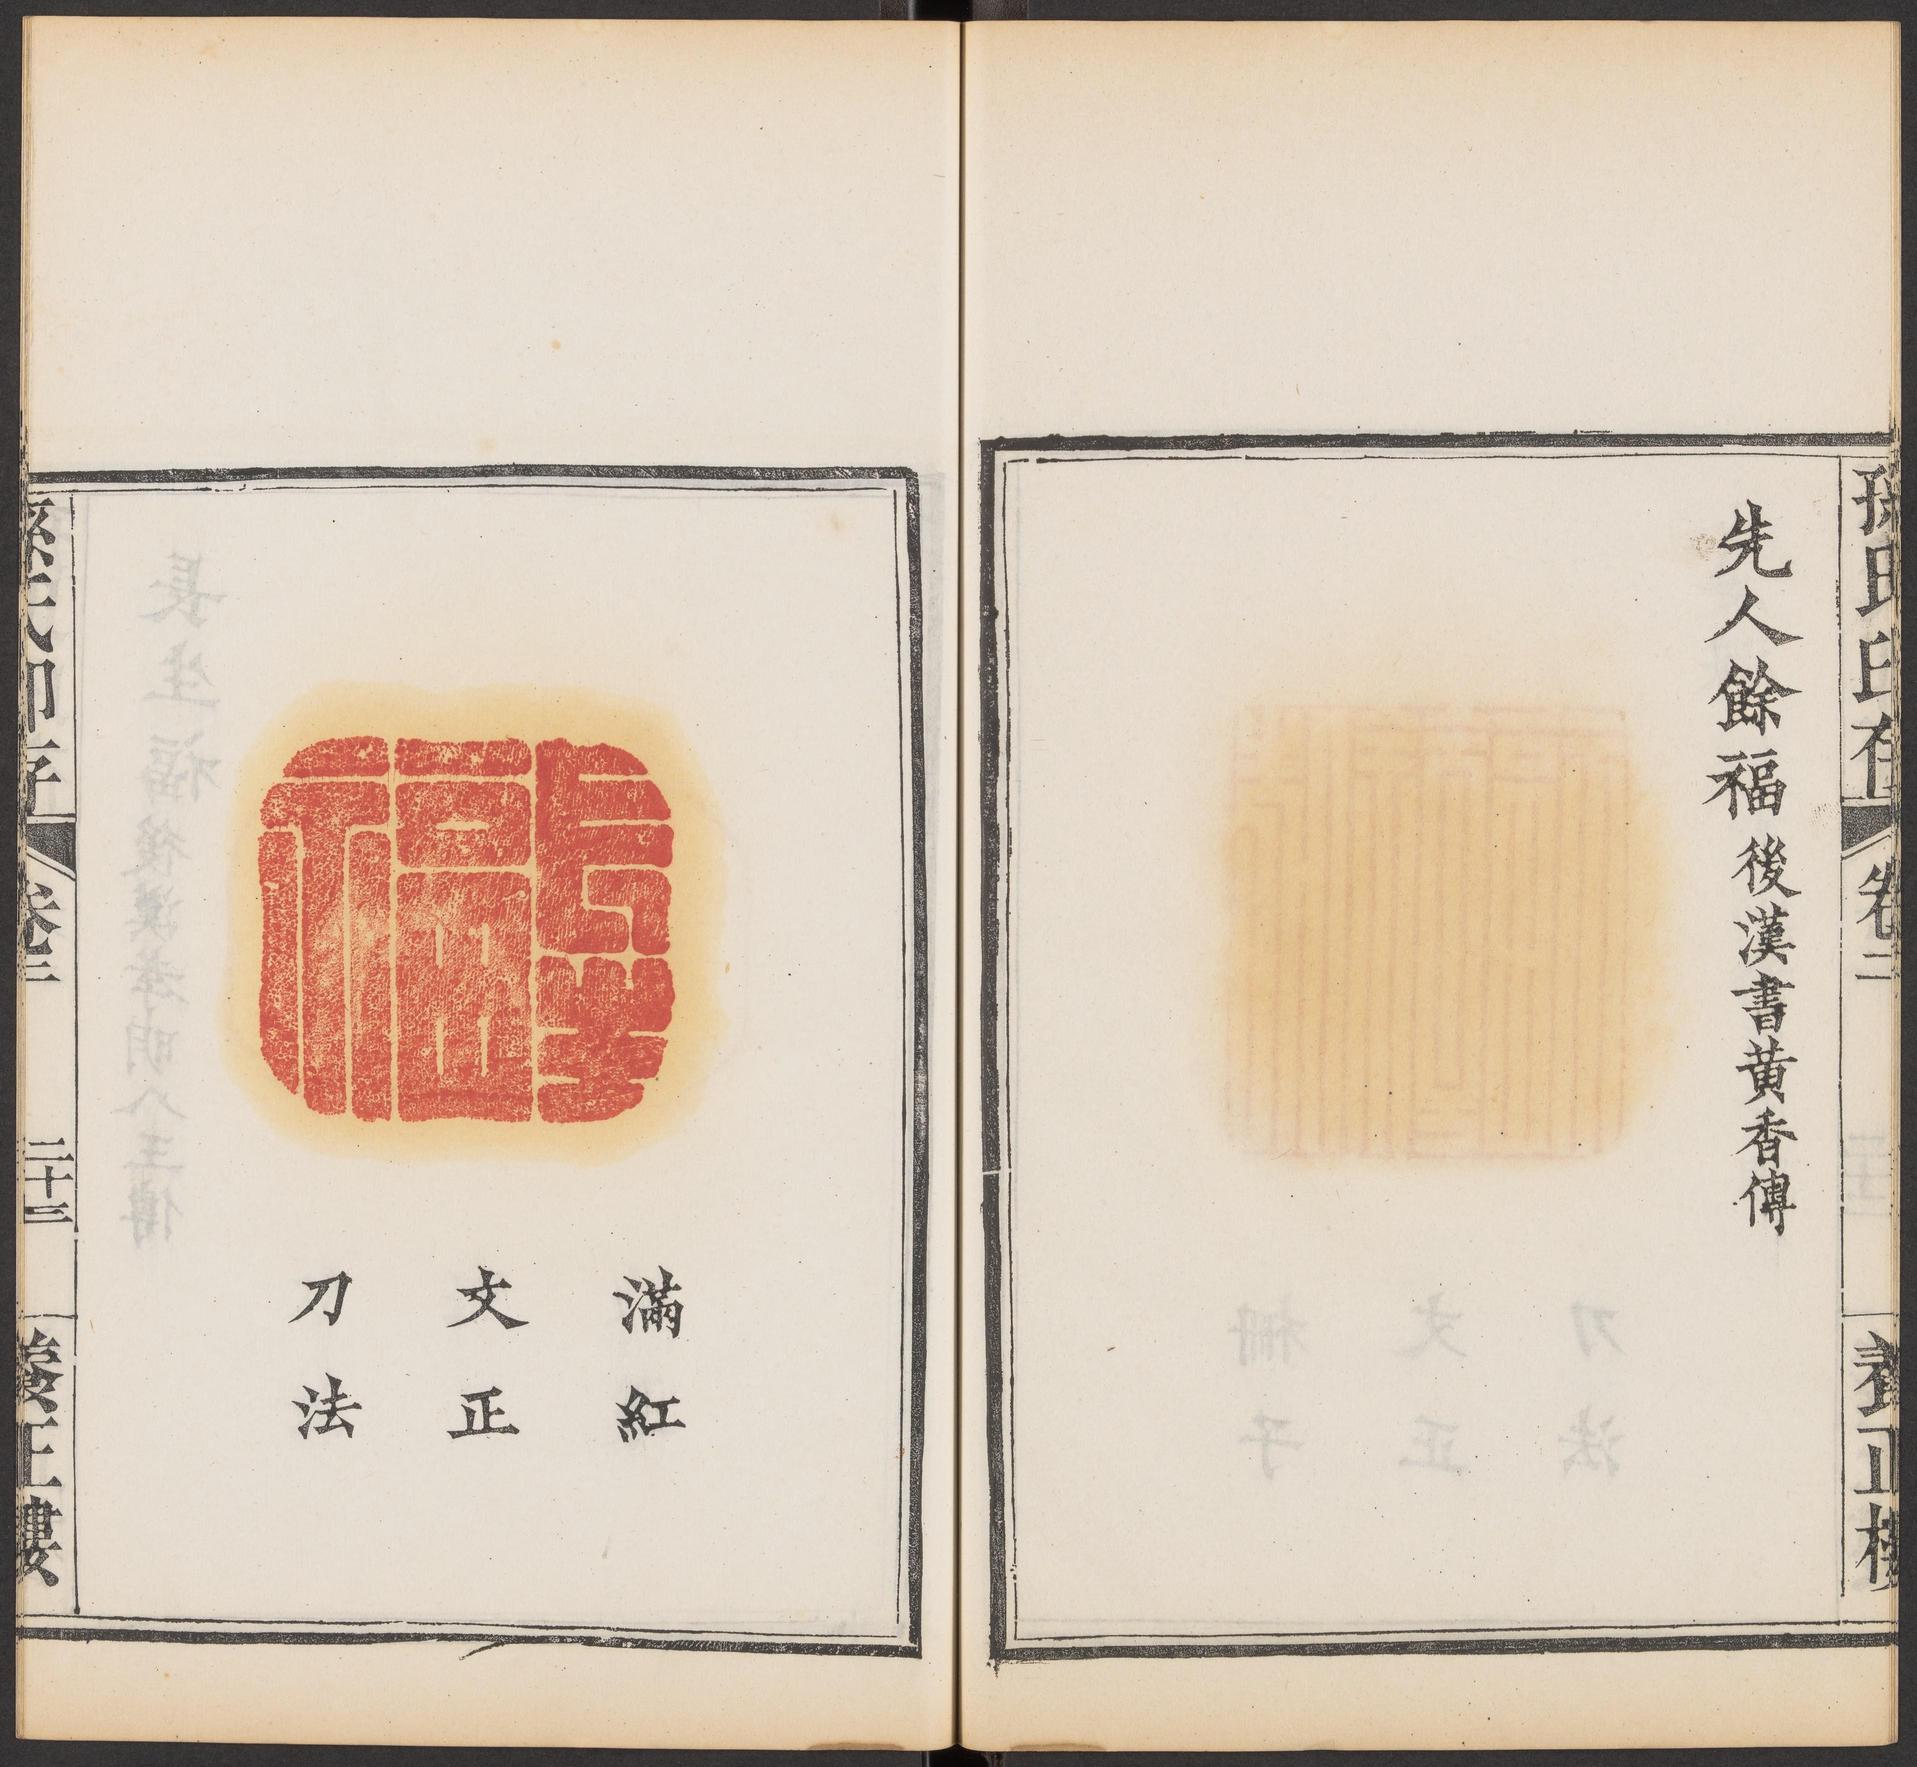 孫氏印存 卷二 養正樓
先人餘福 後漢書黃香傳
長生福
滿紅
文正
刀法
孫氏印存 卷二 二十三 養正樓